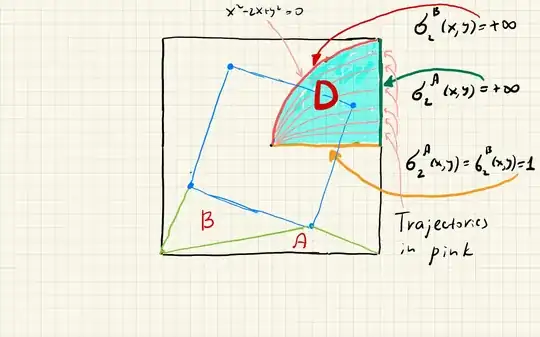 x²-2x+y²=0
σ₂ᴮ(x,y)=+∞
D
σ₂ᴬ(x,y)=+∞
σ₂ᴬ(x,y)=σ₂ᴮ(x,y)=1
B
A
Trajectories
in pink